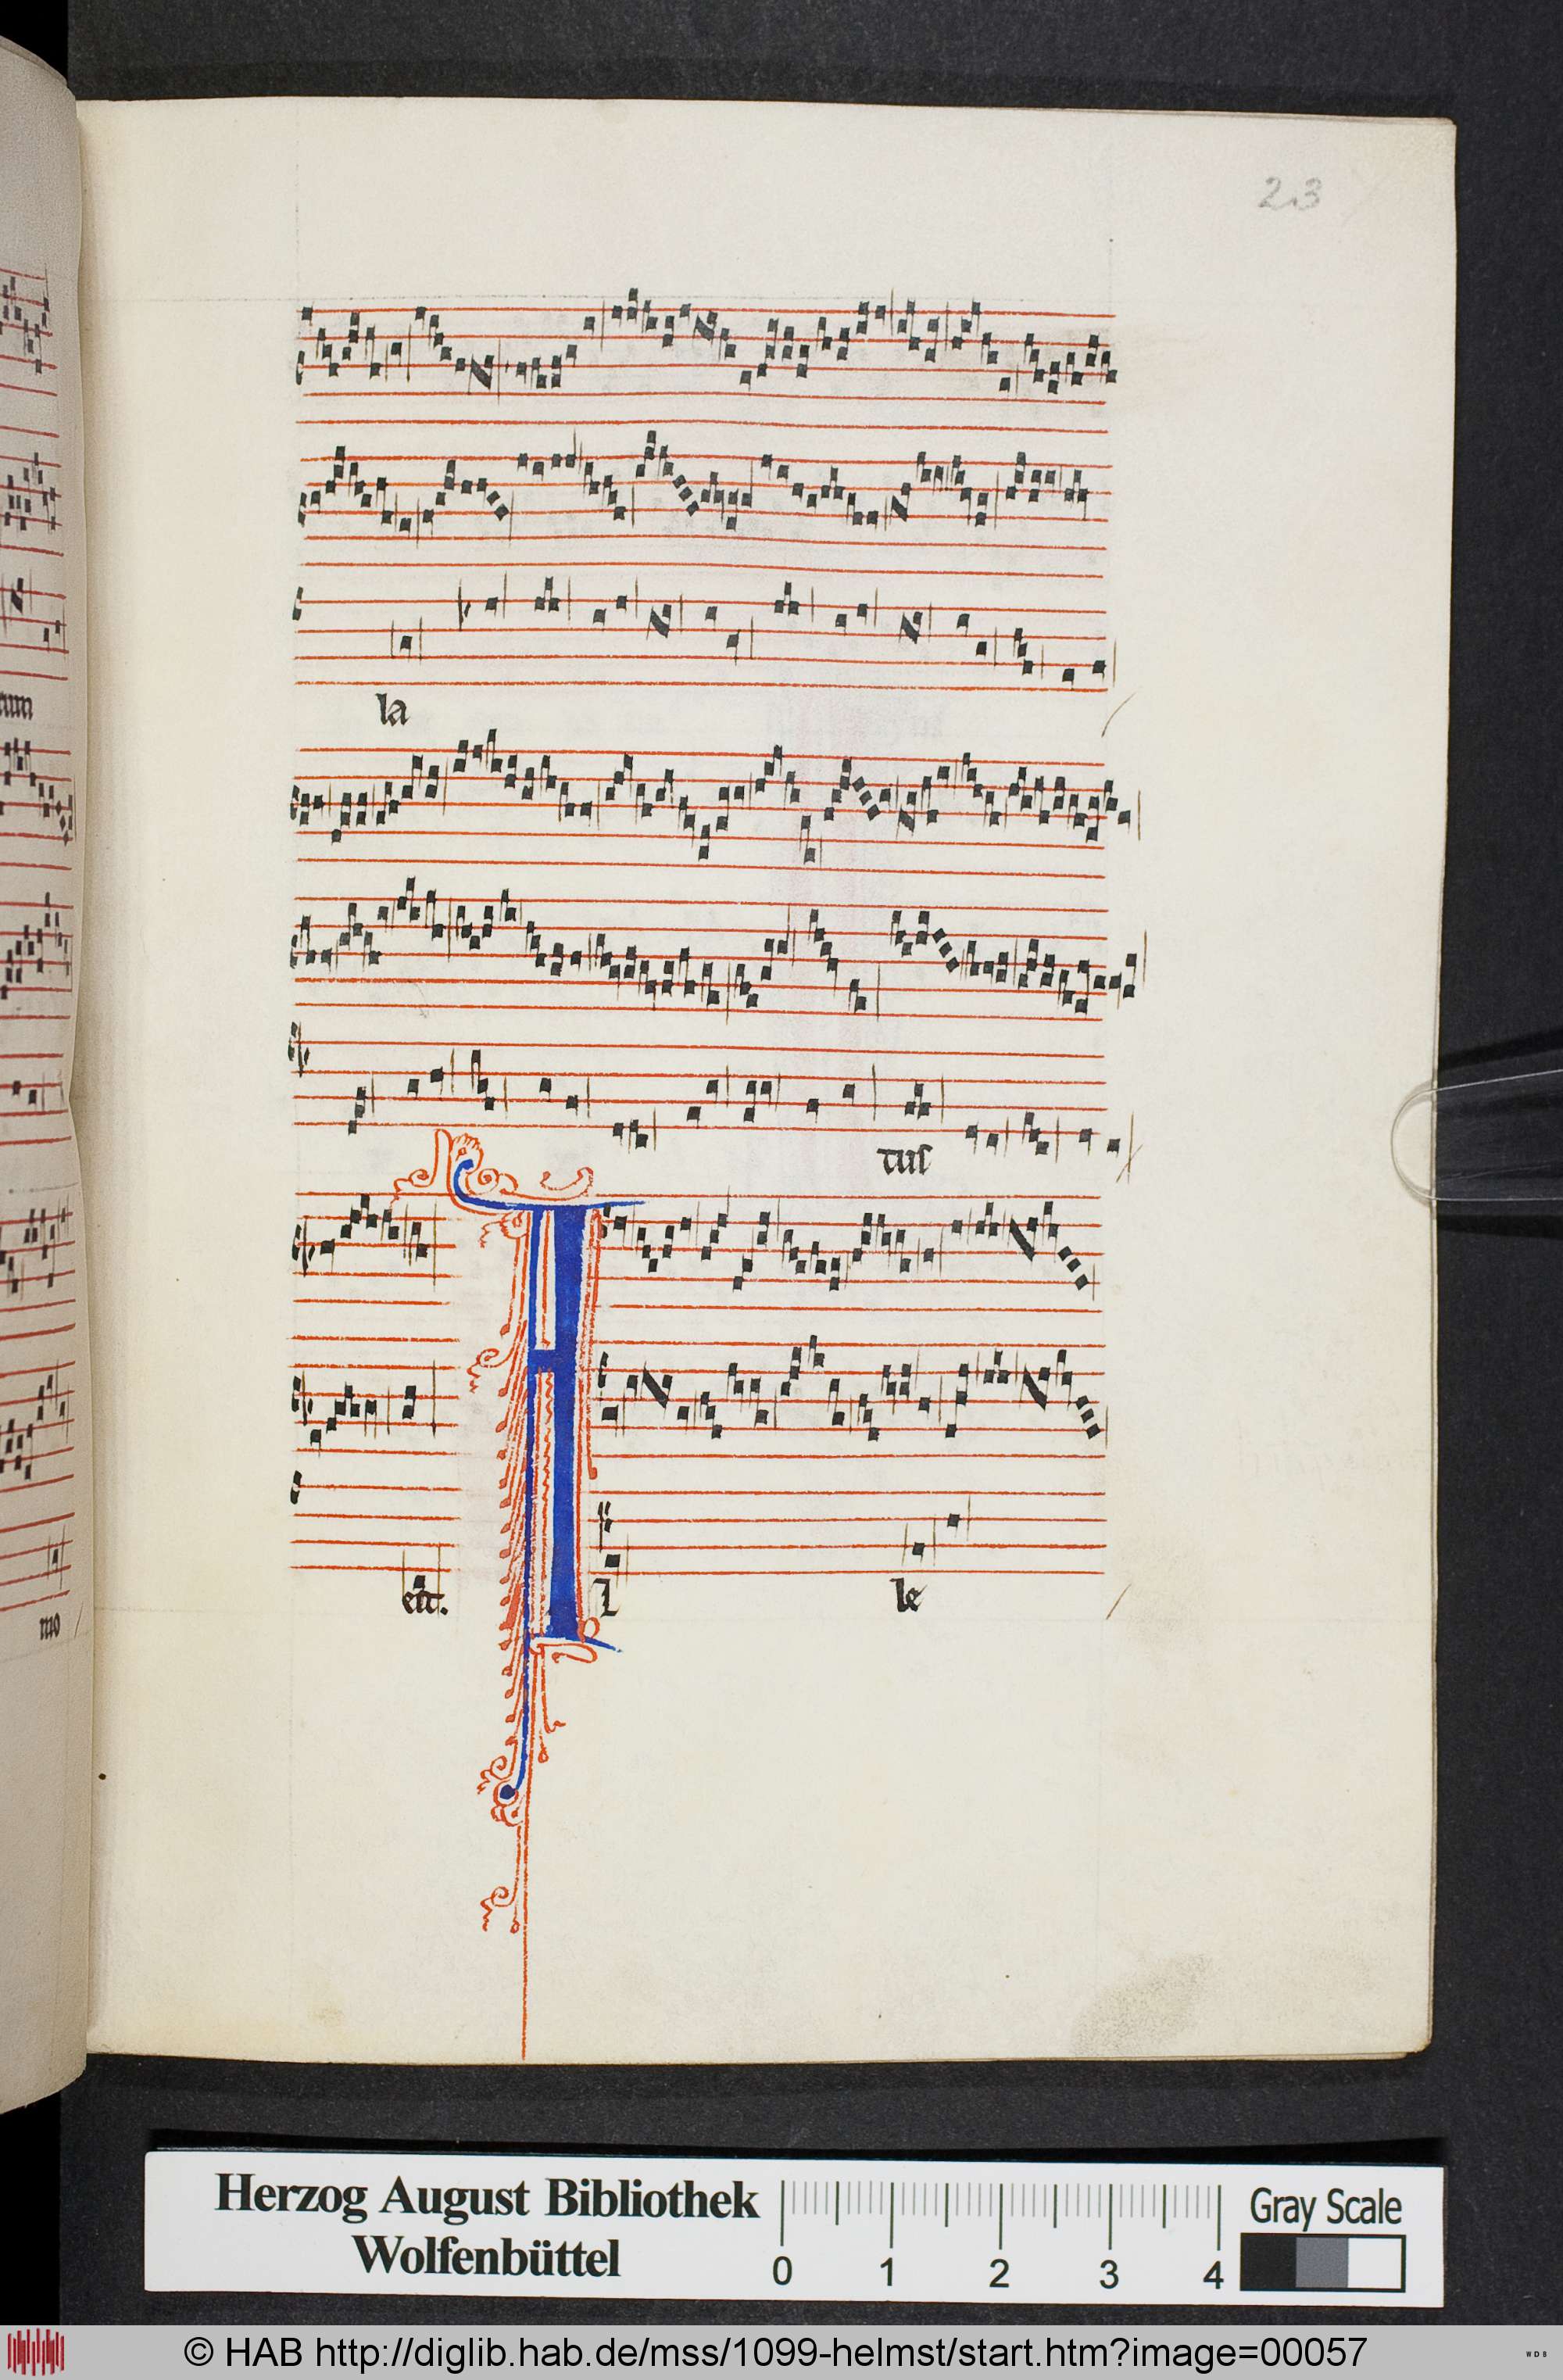 23
rum
la
tus
mo
est. A l le
Herzog August Bibliothek
Wolfenbüttel
0 1 2 3 4
Gray Scale
© HAB http://diglib.hab.de/mss/1099-helmst/start.htm?image=00057
WDB